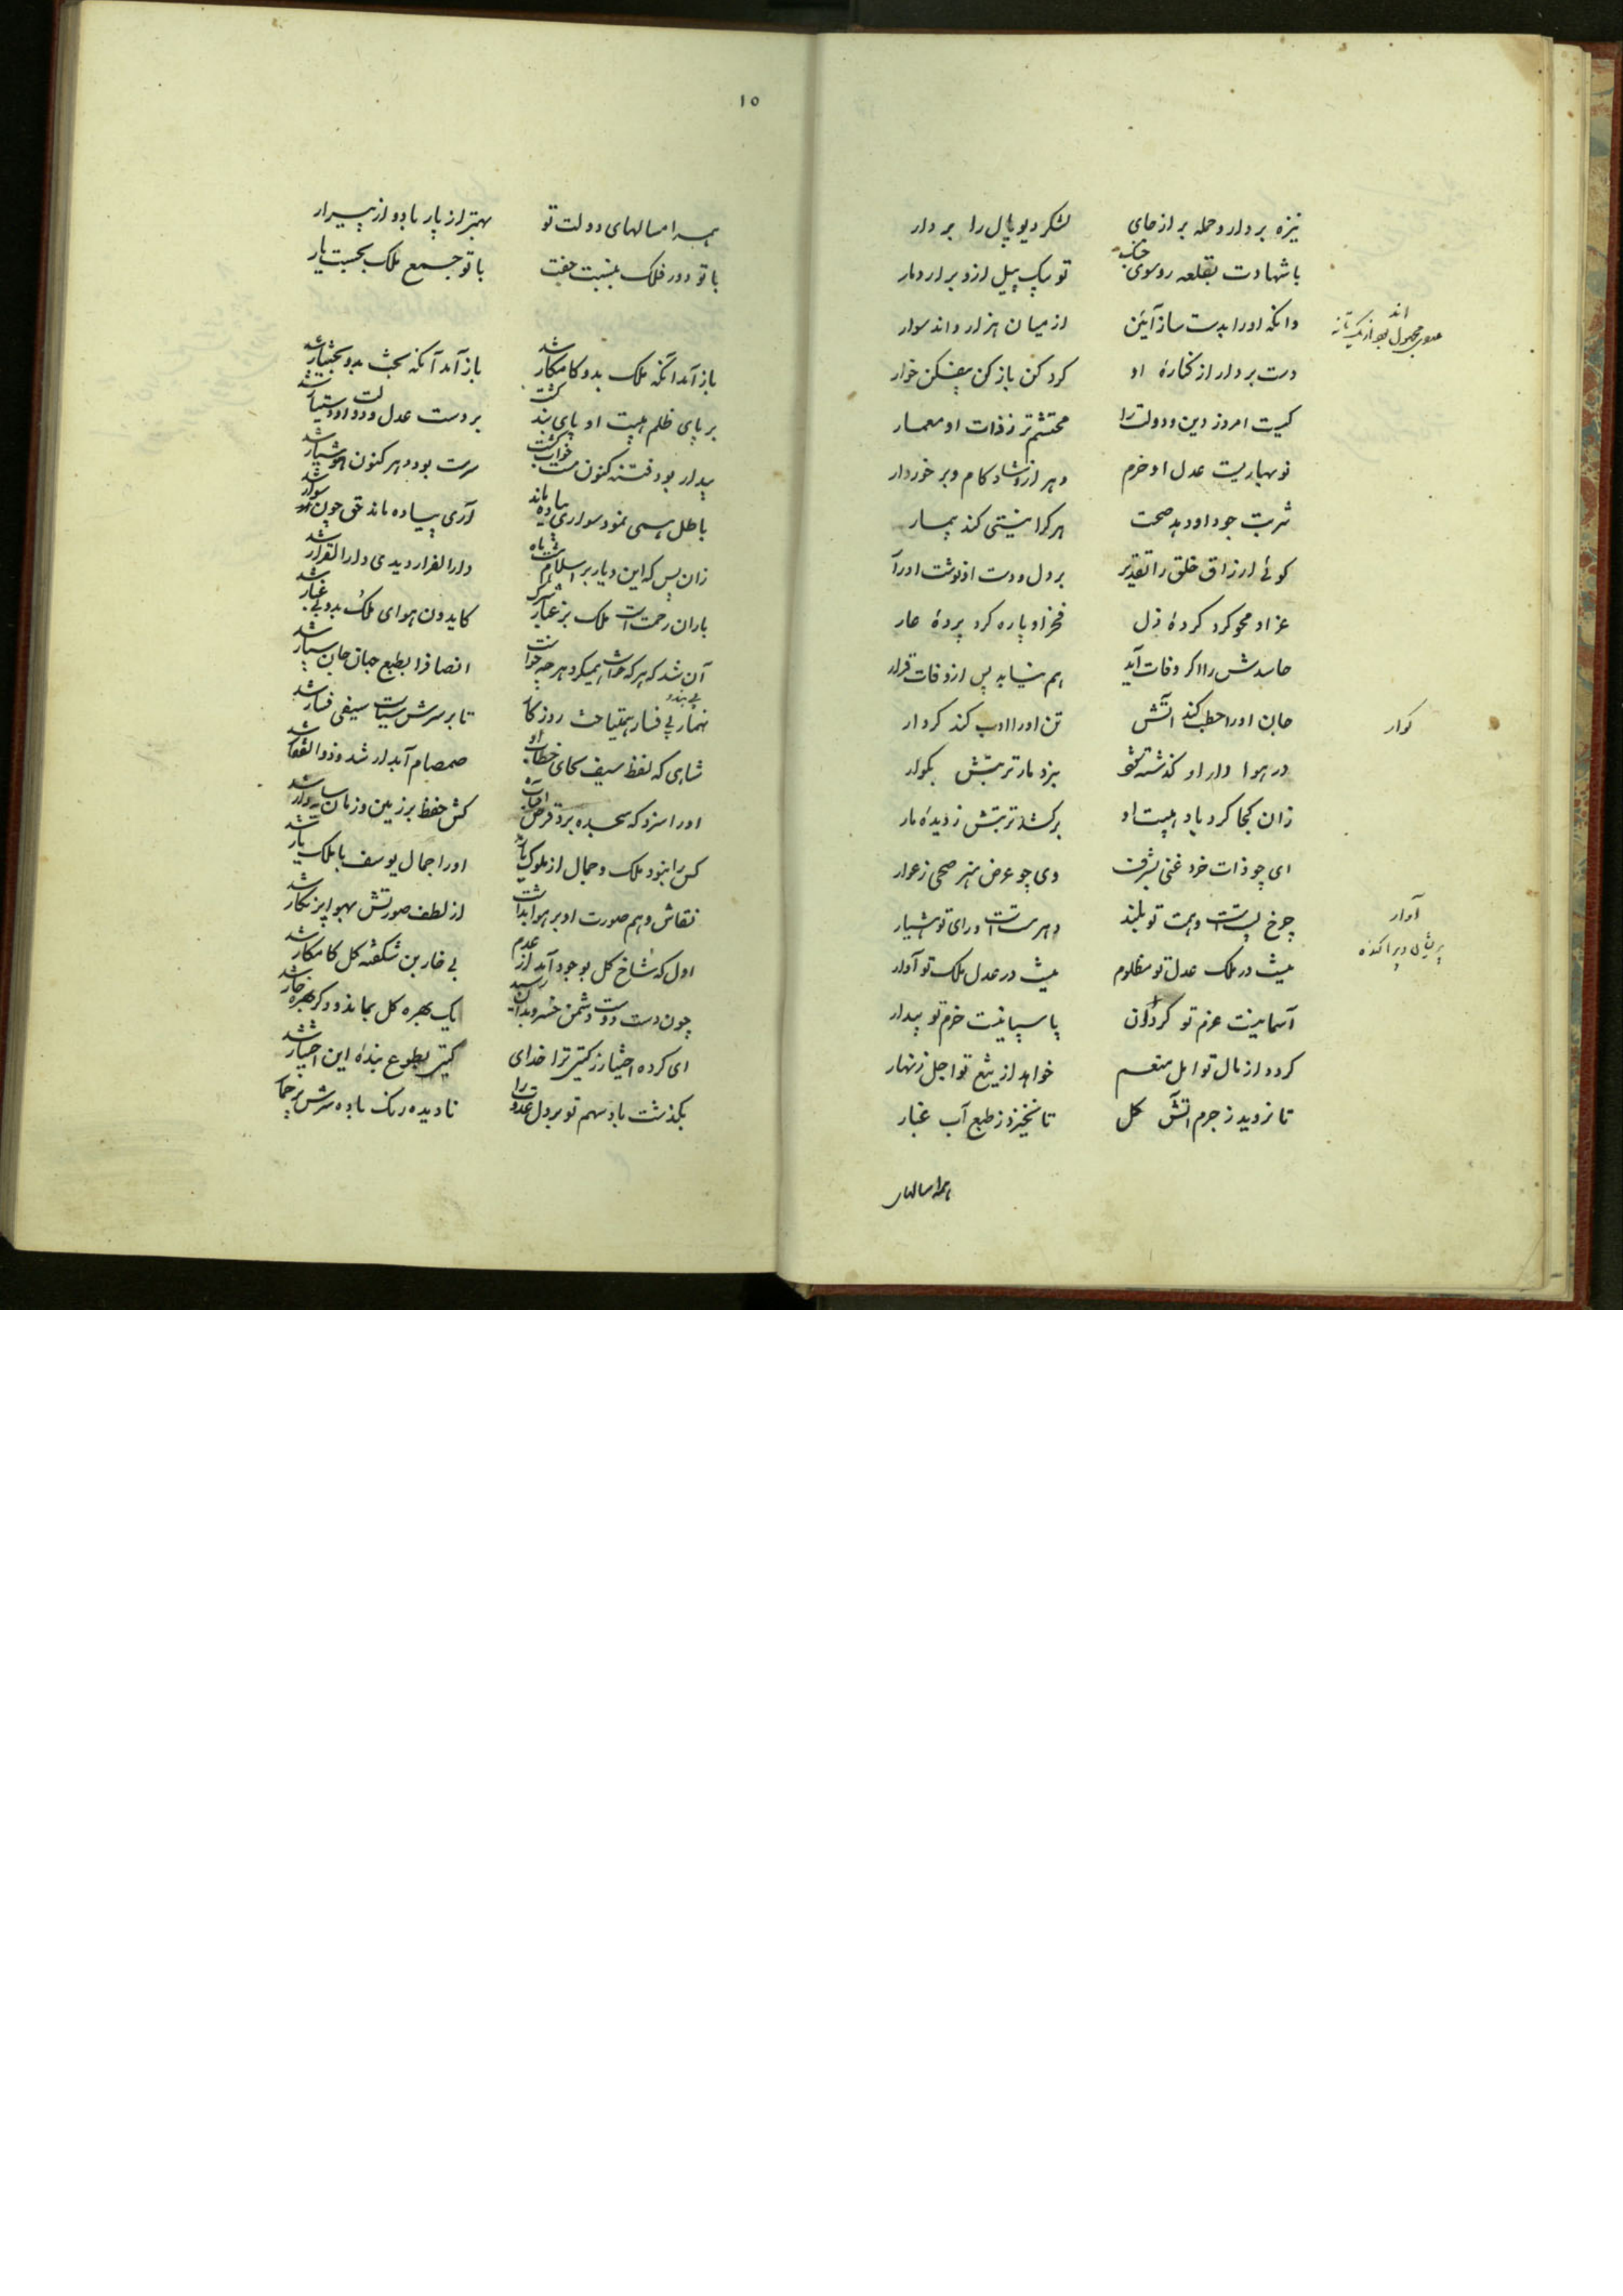 نیزه بردار و حمله بر از جای لشکر دیو پال را بر دار
با شهادت بقلعه رو سوی جنگ تو یک پیل ازو برار دمار
وانکه او را بدست ساز آئین از میان هزار و اند سوار
اند
دست بردار از کنارهٔ او کرد کن باز کن بیفکن خوار
کیست امروز دین و دولت را محتشم تر ز ذات او معمار
نوبهاریست عدل او خرم دهر ازو شاد کام و برخوردار
شربت جود او دهد صحت هر کرا نیستی کند بیمار
کوئی ارزاق خلق را تقدیر بر دل و دست او نوشت ادرا
عز او محو کرد کردهٔ ذل فخر او پاره کرد پردهٔ عار
حاسدش را اکر وفات آید هم نیابد پس از وفات قرار
جان او را حطب کند آتش تن او را ادب کند کردار
کوار
در هوا دار او کذشته بزد مار تربتش بکوار
زان کجا کرد یاد هیبت او برکشد تربتش ز دیدهٔ مار
ای چو ذات خرد غنی بشرف وی چو عرض هنر صحی ز عوار
چرخ پستست و همت تو بلند دهر مستست و رای تو هشیار
آوار
پریشان و پراکنده
نیست در ملک عدل تو مظلوم نیست در عدل ملک تو آوار
آسمانیست عزم تو کردان پاسبانیست حزم تو بیدار
کردد از مال تو امل منعم خواهد از تیغ تو اجل زنهار
تا نروید ز جرم آتش کل تا نخیزد ز طبع آب غبار
همه امسالهای
١٥
همه امسالهای دولت تو بهتر از پار باد و از پیرار
با تو دور فلک بنسبت جفت با تو جمع ملک بحسبت یار
باز آمد آنکه ملک بدو کامکار شد باز آمد آنکه بخت بدو بختیار شد
بر پای ظلم هیبت او پای بند کشت بر دست عدل دولت او دستیار شد
بیدار بود فتنه کنون مست خواب کشت مست بود دهر کنون هوشیار شد
باطل همی نمود سواری پیاده ماند آری پیاده ماند حق چون سوار شد
زان پس که این دیار بر اسلام دارالفرار دیدی دارالقرار شد
باران رحمتست ملک بر غبار شرک کایدون هوای ملک بدو بی غبار شد
آن شد که هر که خواست همیکرد هر چه خواست انصاف را بطبع جهان جان سپار شد
تا بر سرش سیاست سیفی فسار شد
شاهی که لفظ سیف بجای خطاب او صمصام آبدار شد و ذوالفقار شد
او را سزد که سجده برد قرص آفتاب کش حفظ بر زمین و زمان سایه دار شد
کس را نبود ملک و جمال از ملوک یار او را جمال یوسف با ملک یار شد
نقاش وهم صورت او بر هوا نداشت از لطف صورتش بهوا بر نکار شد
اول که شاخ کل بوجود آمد از عدم بی خار بن شکفته کل کامکار شد
چون دست دوست و دشمن خسرو بدان رسید یک بهره کل بماند و دکر بهره خار شد
ای کرده اختیار ز کیتی ترا خدای کیتی بطوع بندهٔ این اختیار شد
بکذشت باد سهم تو بر دل عدوت را نادیده رنک باده سرش پر خمار